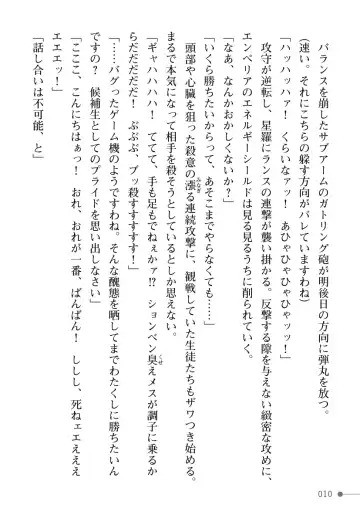 バランスを崩したサブアームのガトリング砲が明後日の方向に弾丸を放つ。
（速い。それにこちらの躱す方向がバレていますわね）
「ハッハッハァ！　くらいなァッ！　あひゃひゃひゃひゃッッ！」
攻守が逆転し、星羅にランスの連撃が襲い掛かる。反撃する隙を与えない緻密な攻めに、
エンペリアのエネルギーシールドは見る見るうちに削られていく。
「なあ、なんかおかしくないか？」
「いくら勝ちたいからって、あそこまでやらなくても……」
頭部や心臓を狙った殺意の漲る連続攻撃に、観戦していた生徒たちもザワつき始める。
みなぎ
まるで本気になって相手を殺そうとしているとしか思えない。
「ギャハハハハ！　ててて、手も足もでねぇかァ!?　ションベン臭えメスが調子に乗るか
くせ
らだだだだだ！　ぶぶぶ、ブッ殺すすすすす！」
「……バグったゲーム機のようですわね。そんな醜態を晒してまでわたくしに勝ちたいん
ですの？　候補生としてのプライドを思い出しなさい」
「こここ、こんにちはぁっ！　おれ、おれが一番、ばんばん！　ししし、死ねェエエエエ
エエエッ！」
「話し合いは不可能、と」
010